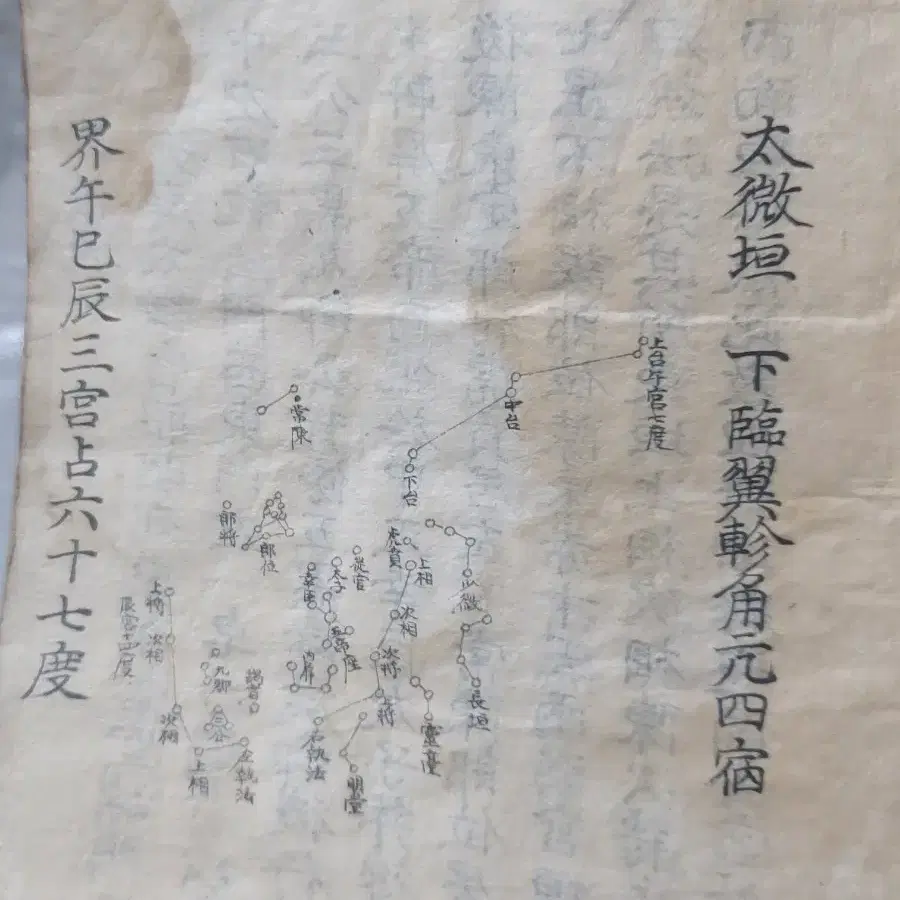 太微垣 下臨翼軫角亢四宿
上台午宮七度
中台
下台
常陳
郎將
郎位
虎賁
上相
從官
太子
幸臣
次相
五帝座
少微
長垣
內屛
次將
上將
靈臺
明堂
右執法
上將
辰宮十四度
次相
九卿
謁者
次將
上相
左執法
界午巳辰三宮占六十七度